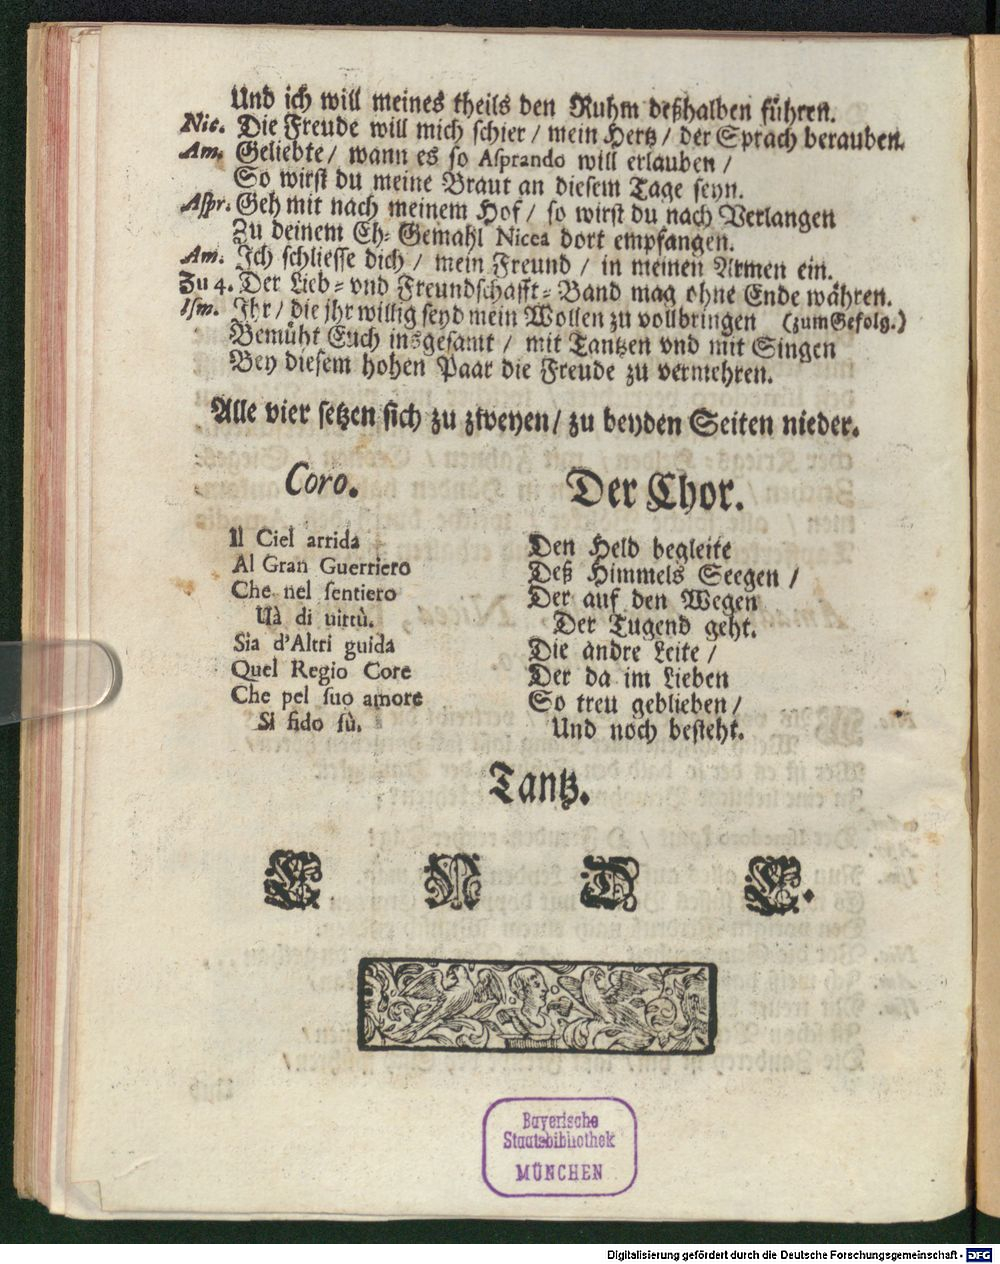 Und ich will meines theils den Ruhm deßhalben führen.
Nic. Die Freude will mich schier / mein Hertz / der Sprach berauben.
Am. Geliebte / wann es so Asprando will erlauben /
So wirst du meine Braut an diesem Tage seyn.
Aspr. Geh mit nach meinem Hof / so wirst du nach Verlangen
Zu deinem Eh-Gemahl Nicea dort empfangen.
Am. Ich schliesse dich / mein Freund / in meinen Armen ein.
Zu 4. Der Lieb- vnd Freundschafft-Band mag ohne Ende währen.
Ism. Ihr / die jhr willig seyd mein Wollen zu vollbringen (zum Gefolg.)
Bemüht Euch insgesamt / mit Tantzen vnd mit Singen
Bey diesem hohen Paar die Freude zu vermehren.
Alle vier setzen sich zu zweyen / zu beyden Seiten nieder.
Coro.
Il Ciel arrida
Al Gran Guerriero
Che nel sentiero
Uà di uirtù.
Sia d'Altri guida
Quel Regio Core
Che pel suo amore
Sì fido fù.
Der Chor.
Den Held begleite
Deß Himmels Seegen /
Der auf den Wegen
Der Tugend geht.
Die andre Leite /
Der da im Lieben
So treu geblieben /
Und noch besteht.
Tantz.
E N D E.
Bayerische
Staatsbibliothek
MÜNCHEN
Digitalisierung gefördert durch die Deutsche Forschungsgemeinschaft - DFG